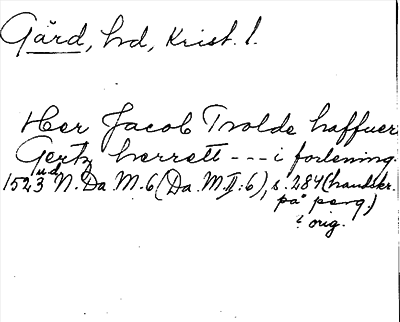 Gärd, hd, Krist. l.
Her Jacob Trolde haffuer
Gertz herrett --- i forlening.
u.d.
1523 N. Da M. 6 (Da. M. II: 6), s. 284 (handskr.
på perg.)
i orig.